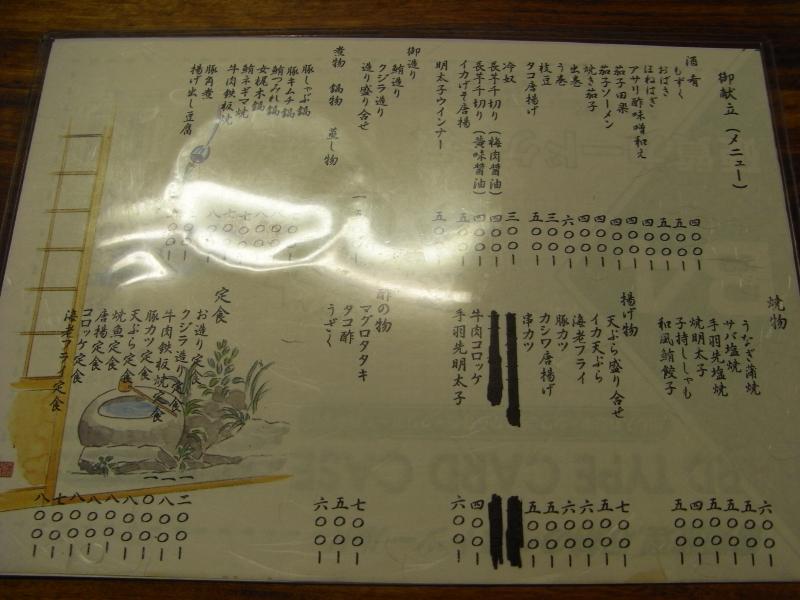 御献立(メニュー)
酒肴
もずく 四〇〇ー
おばき 五〇〇ー
ほねはぎ 五〇〇ー
アサリ酢味噌和え 四〇〇ー
茄子田楽 四〇〇ー
茄子ソーメン 四〇〇ー
焼き茄子 四〇〇ー
出巻 四〇〇ー
う巻 六〇〇ー
枝豆 三〇〇ー
タコ唐揚げ 五〇〇ー
冷奴 三〇〇ー
長芋千切り(梅肉醤油) 四〇〇ー
長芋千切り(黄味醤油) 四〇〇ー
イカげそ唐揚 五〇〇ー
明太子ウインナー 五〇〇ー
御造り
鮪造り
クジラ造り
造り盛り合せ
煮物 鍋物 蒸し物
豚しゃぶ鍋
豚キムチ鍋
鮪つみれ鍋
女梶木鍋
鮪ネギマ焼
牛肉鉄板焼
豚角煮
揚げ出し豆腐
焼物
うなぎ蒲焼 六〇〇ー
サバ塩焼 五〇〇ー
手羽先塩焼 五〇〇ー
焼明太子 五〇〇ー
子持ししゃも 四〇〇ー
和風鮪餃子 五〇〇ー
揚げ物
天ぷら盛り合せ 七〇〇ー
イカ天ぷら 五〇〇ー
海老フライ 六〇〇ー
豚カツ 六〇〇ー
カシワ唐揚げ 五〇〇ー
串カツ 五〇〇ー
牛肉コロッケ 四〇〇ー
手羽先明太子 六〇〇ー
酢の物
マグロタタキ 七〇〇ー
タコ酢 五〇〇ー
うざく 六〇〇ー
定食
お造り定食 一二〇〇ー
クジラ造り定食 一八〇〇ー
牛肉鉄板焼定食 一〇〇〇ー
豚カツ定食 八〇〇ー
天ぷら定食 八〇〇ー
焼魚定食 八〇〇ー
唐揚定食 八〇〇ー
コロッケ定食 七〇〇ー
海老フライ定食 八〇〇ー
CARD TYPE CARD CASE